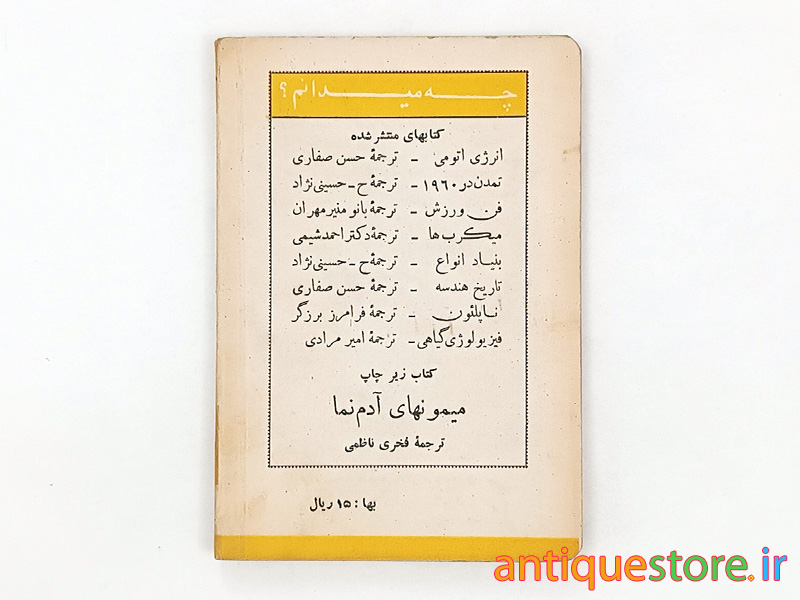 چه میدانم؟
کتابهای منتشر شده
انرژی اتومی - ترجمهٔ حسن صفاری
تمدن در ۱۹۶۰ - ترجمهٔ ح - حسینی‌نژاد
فن ورزش - ترجمهٔ بانو منیر مهران
میکرب‌ها - ترجمهٔ دکتر احمد شیمی
بنیاد انواع - ترجمهٔ ح - حسینی‌نژاد
تاریخ هندسه - ترجمهٔ حسن صفاری
ناپلئون - ترجمهٔ فرامرز برزگر
فیزیولوژی گیاهی - ترجمهٔ امیر مرادی
کتاب زیر چاپ
میمونهای آدم‌نما
ترجمهٔ فخری ناظمی
بها : ۱۵ ریال
antiquestore.ir